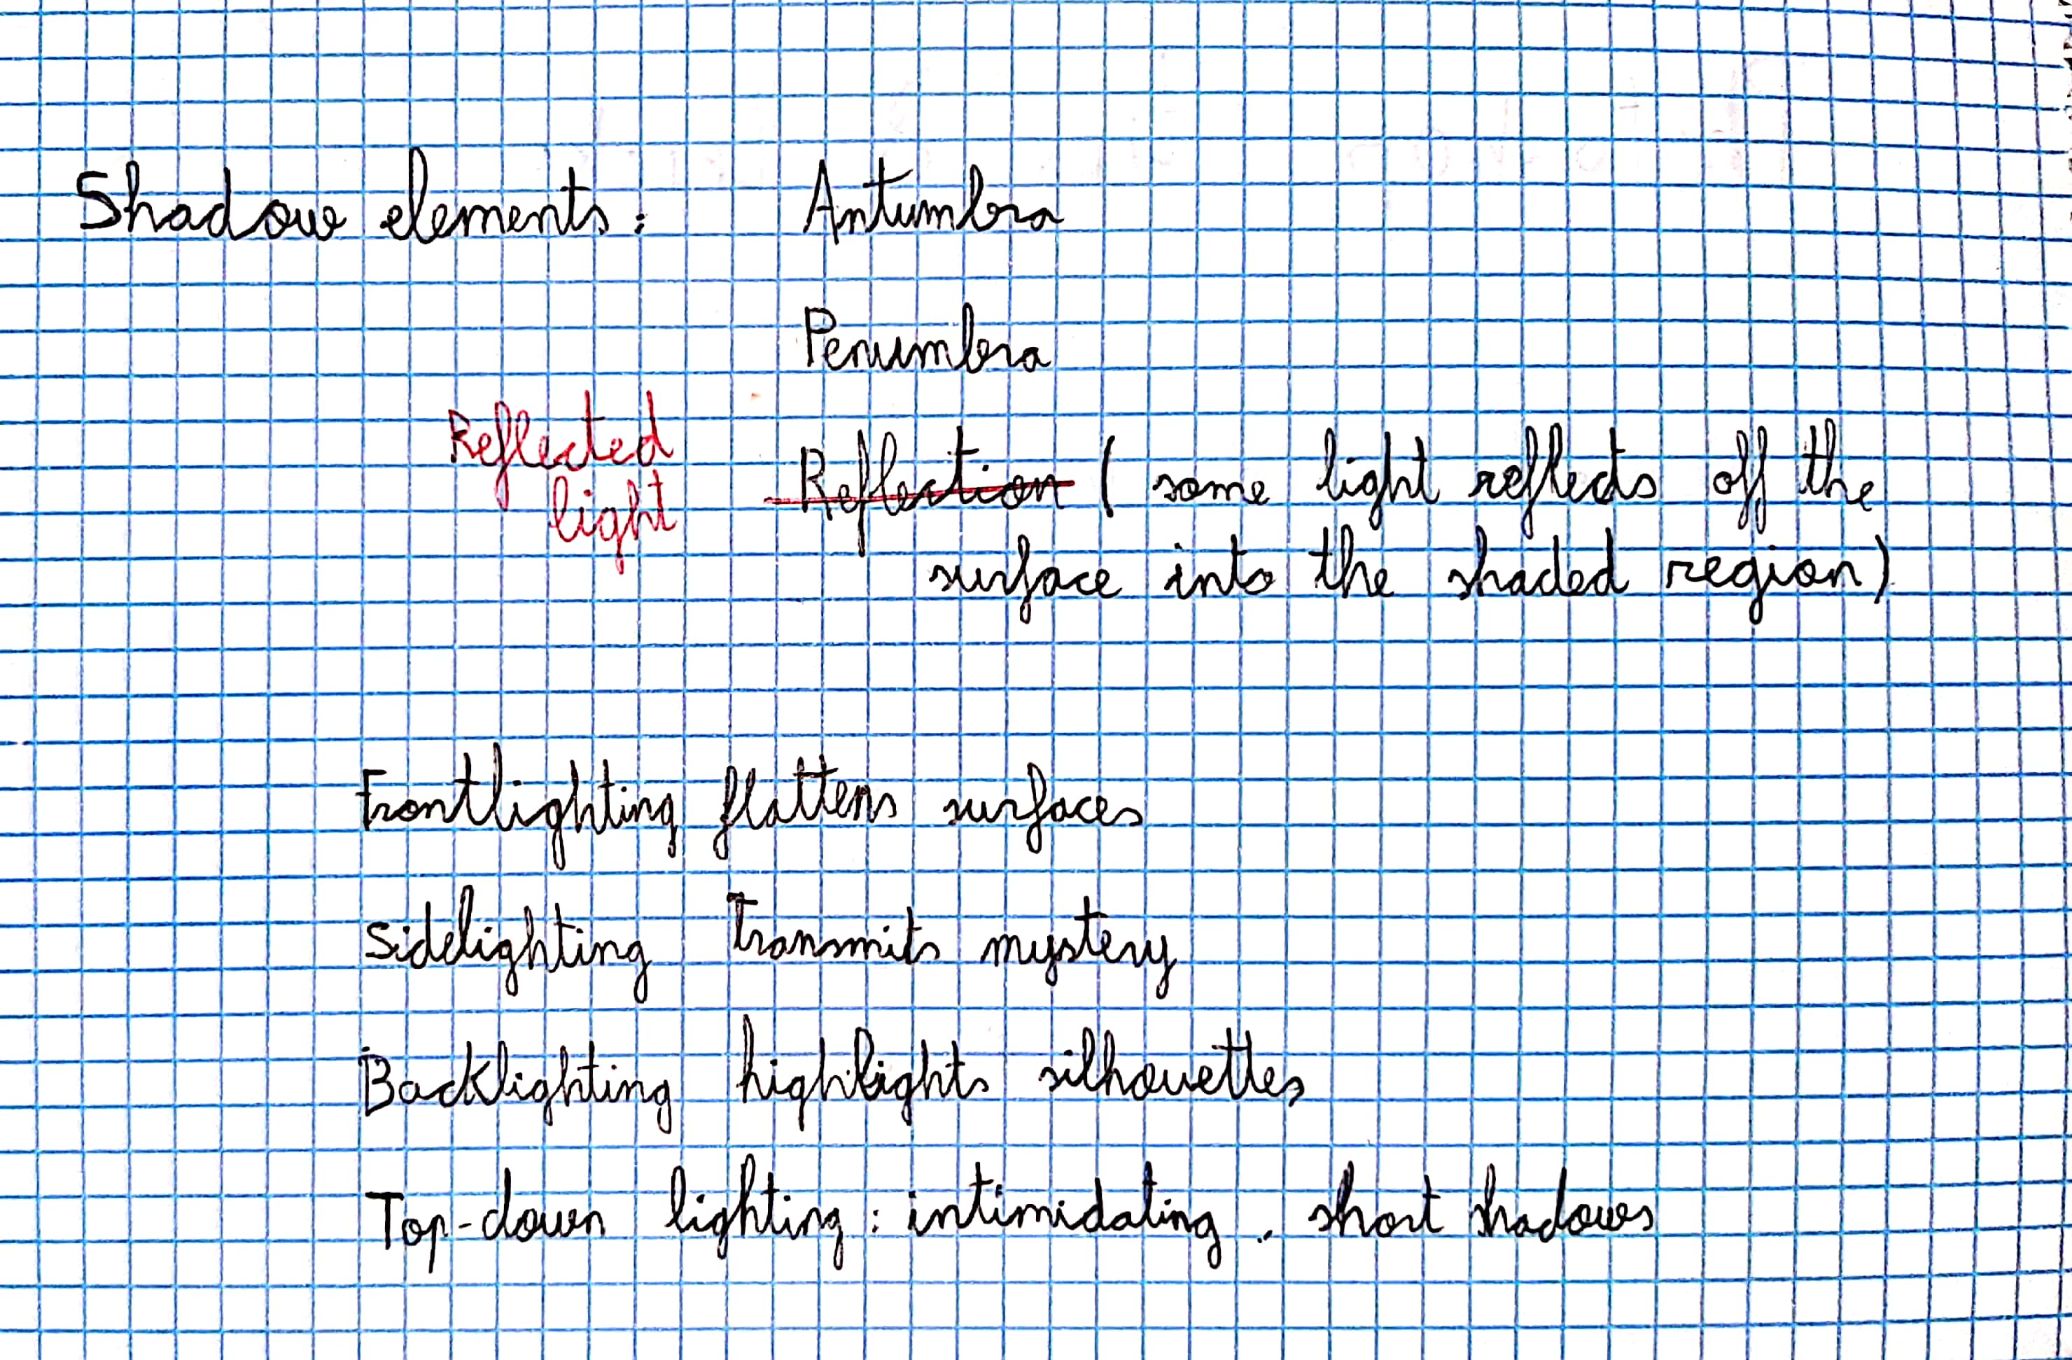 Shadow elements: Antumbra
Penumbra
Reflected
light
Reflection (some light reflects off the
surface into the shaded region)
Frontlighting flattens surfaces
Sidelighting transmits mystery
Backlighting highlights silhouettes
Top-down lighting: intimidating. short shadows